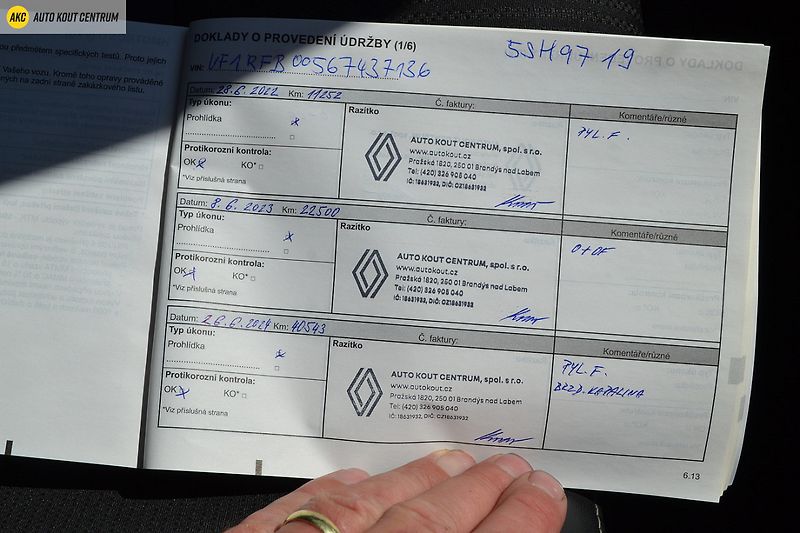 AKC AUTO KOUT CENTRUM
DOKLADY O PROVEDENÍ ÚDRŽBY (1/6)
5SH97 19
VIN: VF1RFB00567437136
Datum: 28.6.2022 Km: 11252 Č. faktury:
Typ úkonu:
Prohlídka x
Protikorozní kontrola:
OK x KO*
*Viz příslušná strana
Razítko
AUTO KOUT CENTRUM, spol. s r.o.
www.autokout.cz
Pražská 1820, 250 01 Brandýs nad Labem
Tel: (420) 326 908 040
IČ: 18631932, DIČ: CZ18631932
Komentáře/různé
PYL. F.
Datum: 8.6.2023 Km: 22500 Č. faktury:
Typ úkonu:
Prohlídka x
Protikorozní kontrola:
OK x KO*
*Viz příslušná strana
Razítko
AUTO KOUT CENTRUM, spol. s r.o.
www.autokout.cz
Pražská 1820, 250 01 Brandýs nad Labem
Tel: (420) 326 908 040
IČ: 18631932, DIČ: CZ18631932
Komentáře/různé
O + OF
Datum: 26.6.2024 Km: 40543 Č. faktury:
Typ úkonu:
Prohlídka x
Protikorozní kontrola:
OK x KO*
*Viz příslušná strana
Razítko
AUTO KOUT CENTRUM, spol. s r.o.
www.autokout.cz
Pražská 1820, 250 01 Brandýs nad Labem
Tel: (420) 326 908 040
IČ: 18631932, DIČ: CZ18631932
Komentáře/různé
PYL. F.
BRZD. KAPALINA
6.13
ou předmětem specifických testů. Proto jejich
Vašeho vozu. Kromě toho opravy prováděné
ných na zadní straně zakázkového listu.